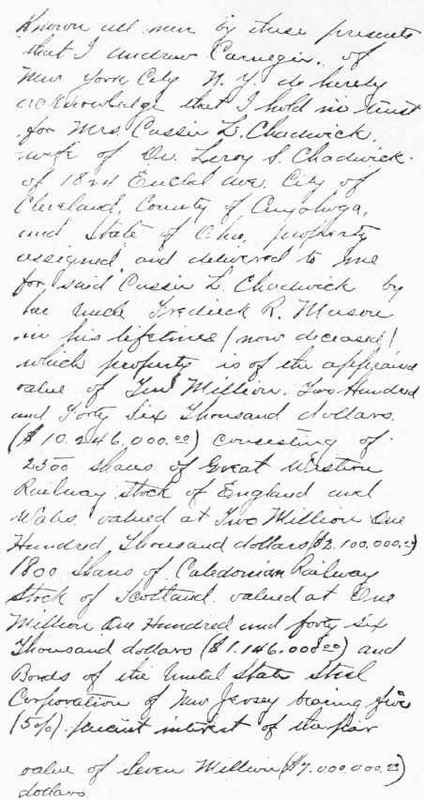 Known all men by these presents
that I Andrew Carnegie, of
New York City N.Y. do hereby
acknowledge that I hold in trust
for Mrs. Cassie L. Chadwick,
wife of Dr. Leroy S. Chadwick
of 1824 Euclid Ave. City of
Cleveland, County of Cuyahoga,
and State of Ohio, property
assigned and delivered to me
for said Cassie L. Chadwick by
her Uncle Fredrick R. Mason
in his lifetime (now deceased)
which property is of the appraised
value of Ten Million, Two Hundred
and Forty Six Thousand dollars
($10.246,000.00) consisting of
2500 shares of Great Western
Railway Stock of England and
Wales, valued at Two Million One
Hundred Thousand dollars ($2.100,000.00)
1800 shares of Caledonian Railway
Stock of Scotland valued at One
Million One Hundred and forty six
Thousand dollars ($1.146.000.00) and
Bonds of the United State Steel
Corporation of New Jersey bearing five
(5%) percent interest of the par
value of Seven Million ($7.000,000.00)
dollars